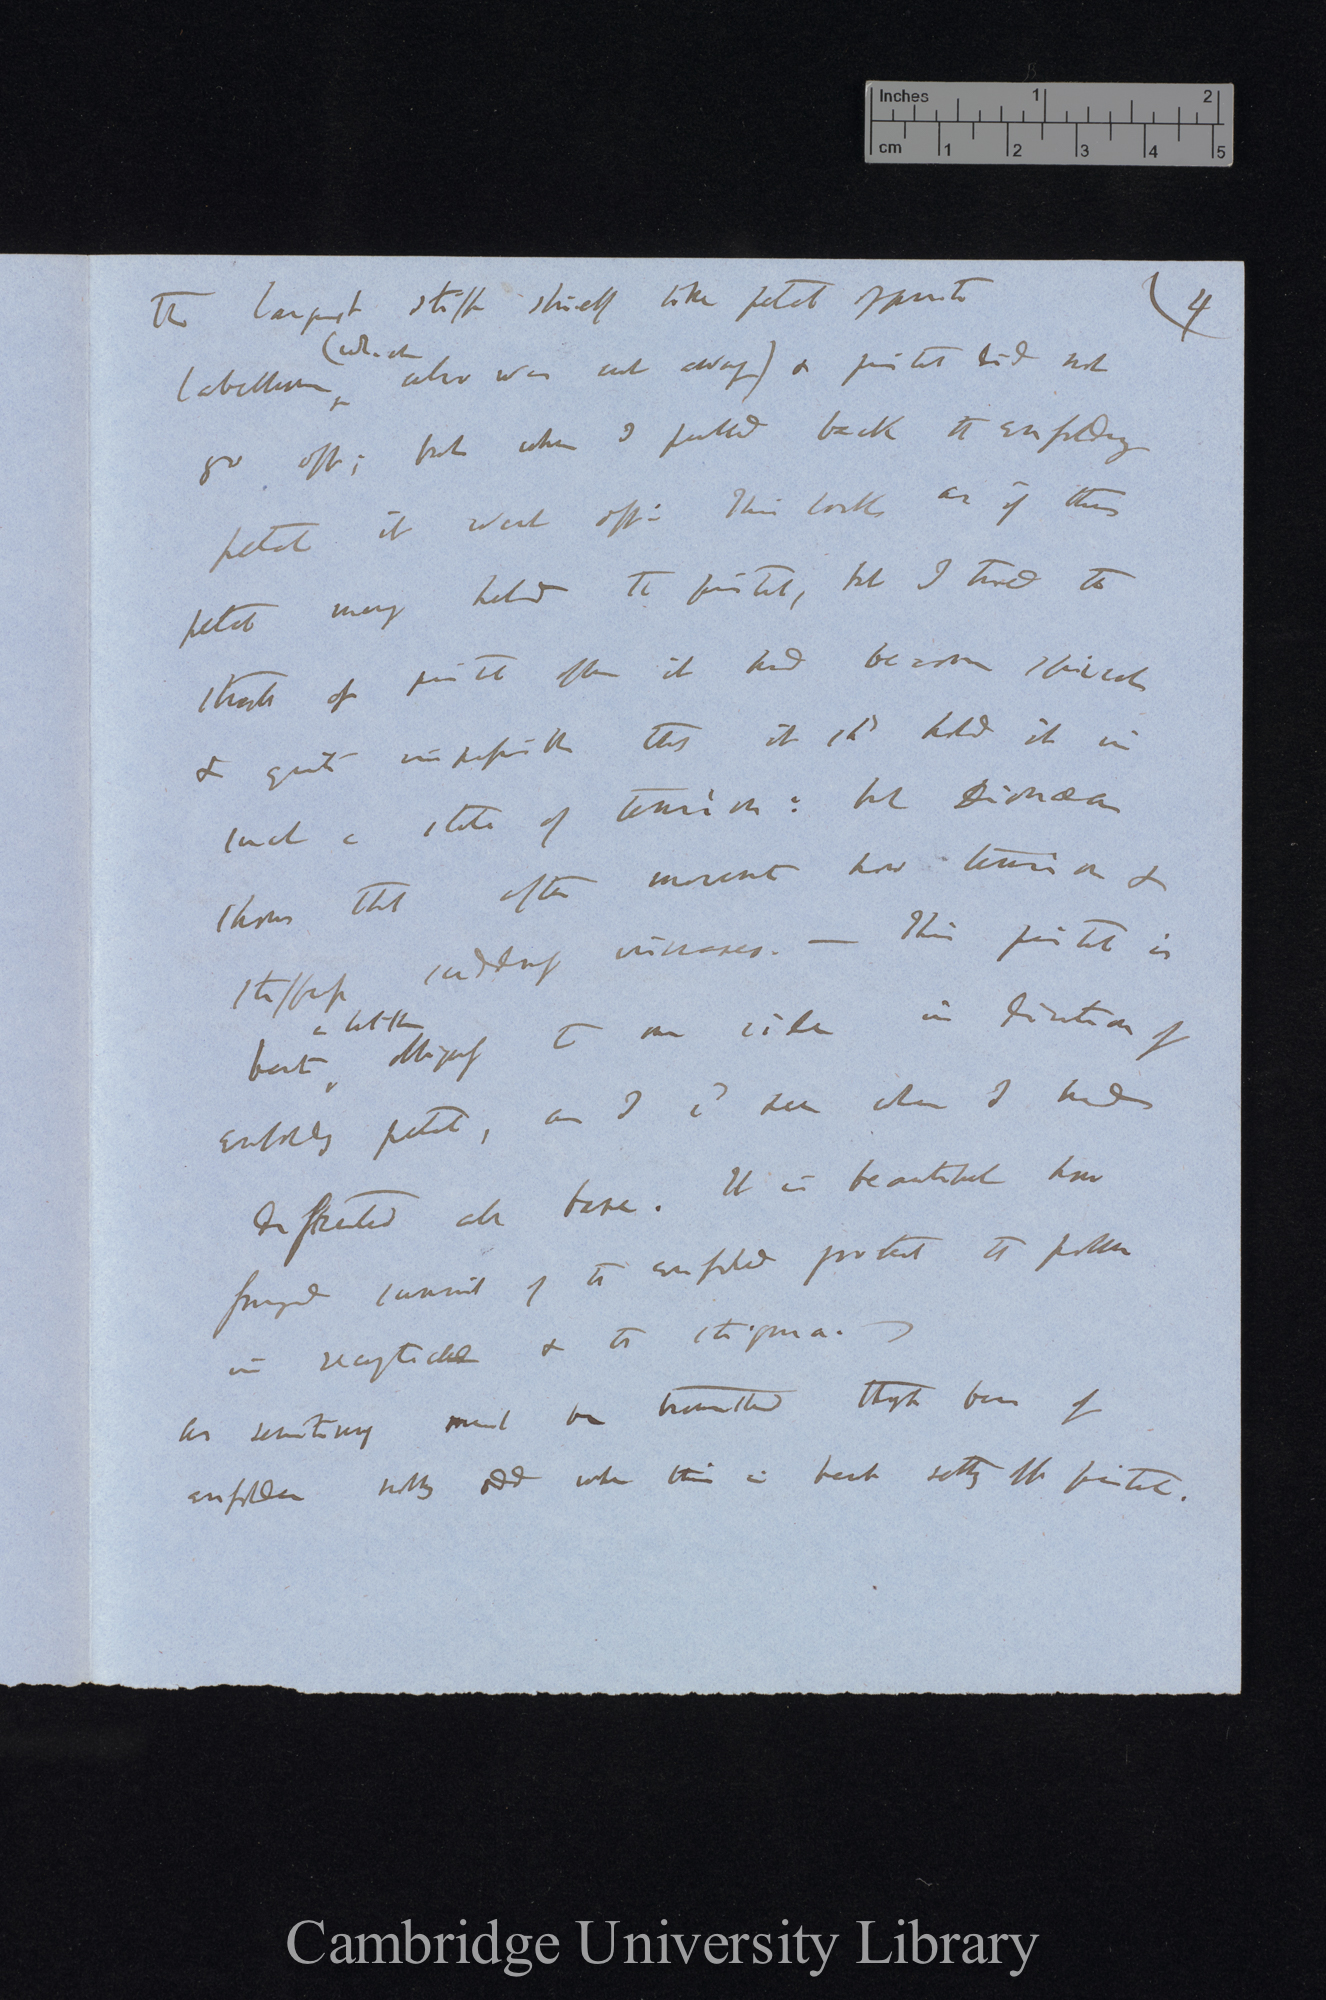 Inches 1 2
cm 1 2 3 4 5
(4
The largest stiff shield like petal opposite
(which
labellum also was cut away) & pistil did not
go off; but when I pulled back the enfolding
petal it went off: This looks as if this
petal may hold the pistil, but I tried the
strength of pistil after it had become
& quite impossible that it shd hold it in
such a state of tension: but Dionæa
shows that after movement how tension &
stiffness suddenly increases. — This pistil is
a little
bent obliquely to one side in direction of
enfolding petal, as I cd see when I had
dissected at base. It is beautiful how
fringed summit of the enfolded protect the pollen
in receptacle & the stigma.
As sensitivity must be transmitted through base of
enfolder nothing odd when this is bent setting off pistil.
Cambridge University Library